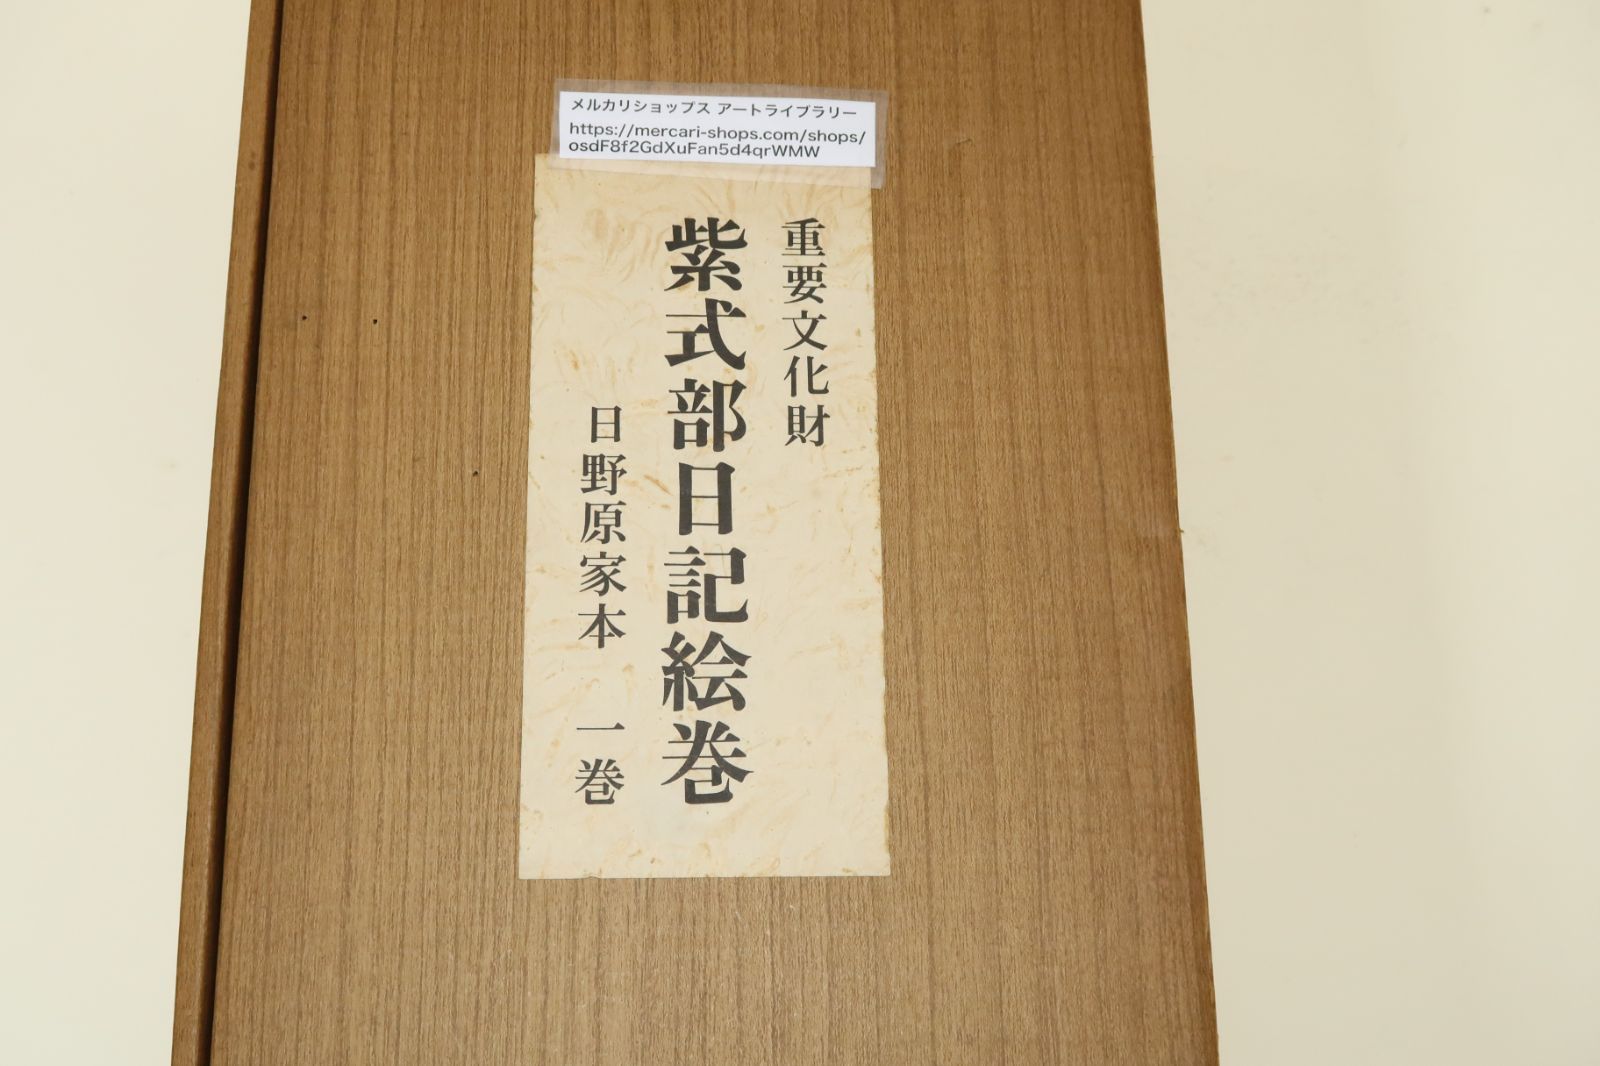 メルカリショップス アートライブラリー
https://mercari-shops.com/shops/
osdF8f2GdXuFan5d4qrWMW
重要文化財
紫式部日記絵巻
日野原家本 一巻